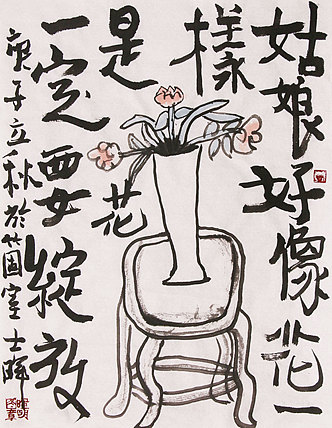 姑娘好像花一
樣
是花
一定要綻放
庚子立秋於園室士